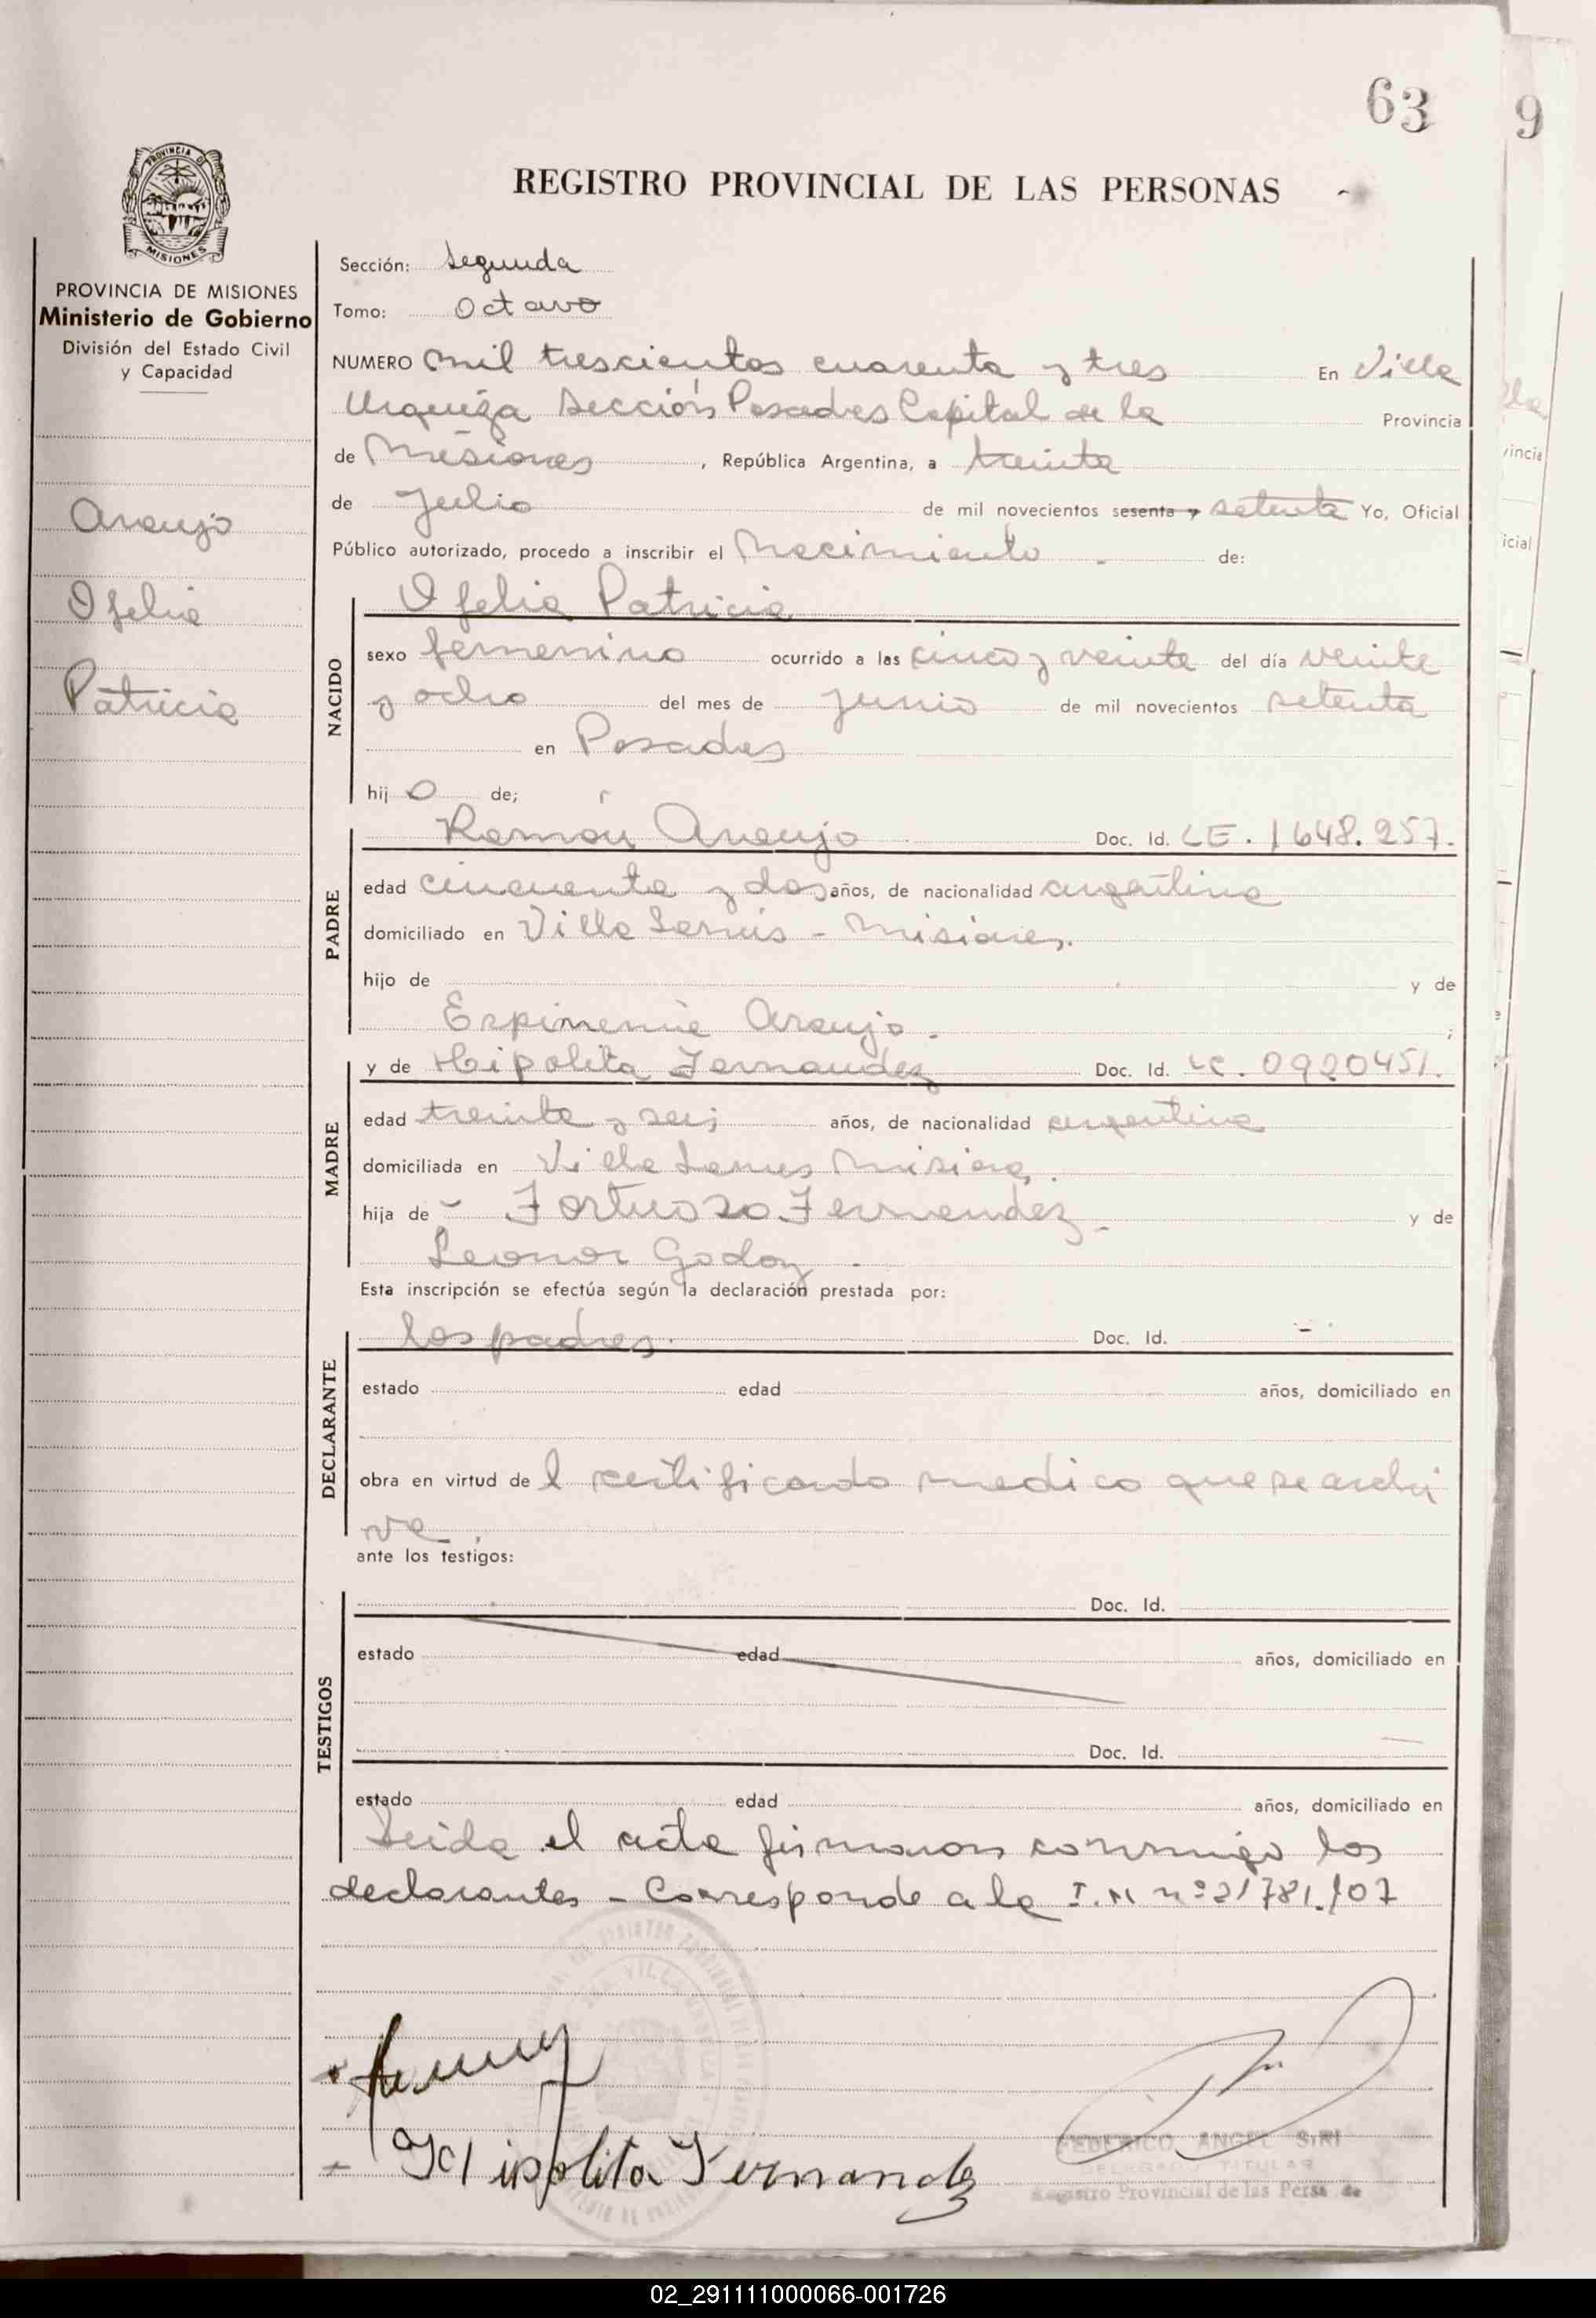 63
9
REGISTRO PROVINCIAL DE LAS PERSONAS
PROVINCIA DE MISIONES
PROVINCIA DE MISIONES
Ministerio de Gobierno
División del Estado Civil
y Capacidad
Araujo
Ofelia
Patricia
Sección: Segunda
Tomo: Octavo
NUMERO mil trescientos cuarenta y tres En Villa
Urquiza Sección Posadas Capital de la Provincia
de Misiones, República Argentina, a treinta
de Julio de mil novecientos sesenta y setenta Yo, Oficial
Público autorizado, procedo a inscribir el Nacimiento de:
NACIDO
Ofelia Patricia
sexo femenino ocurrido a las cinco y veinte del día veinte
y ocho del mes de Junio de mil novecientos setenta
en Posadas
hij o de;
PADRE
Ramón Araujo Doc. Id. LE. 1648.257.
edad cincuenta y dos años, de nacionalidad argentina
domiciliado en Villa Lanús - Misiones.
hijo de y de
Araujo.
MADRE
y de Hipolita Fernandez Doc. Id. LC. 0920451.
edad treinta y seis años, de nacionalidad argentina
domiciliada en Villa Lanus Misiones.
hija de Fortuoso Fernandez y de
Leonor Godoy.
Esta inscripción se efectúa según la declaración prestada por:
DECLARANTE
los padres. Doc. Id. -
estado edad años, domiciliado en
obra en virtud de l certificado medico que se archi
va.
ante los testigos:
TESTIGOS
Doc. Id.
estado edad años, domiciliado en
Doc. Id.
estado edad años, domiciliado en
Leida el acta firmaron conmigo los
declarantes - Corresponde a la I.N nº 21781/07
Hipolita Fernandez
FEDERICO ANGEL SIRI
DELEGADO TITULAR
Registro Provincial de las Persa
02_291111000066-001726